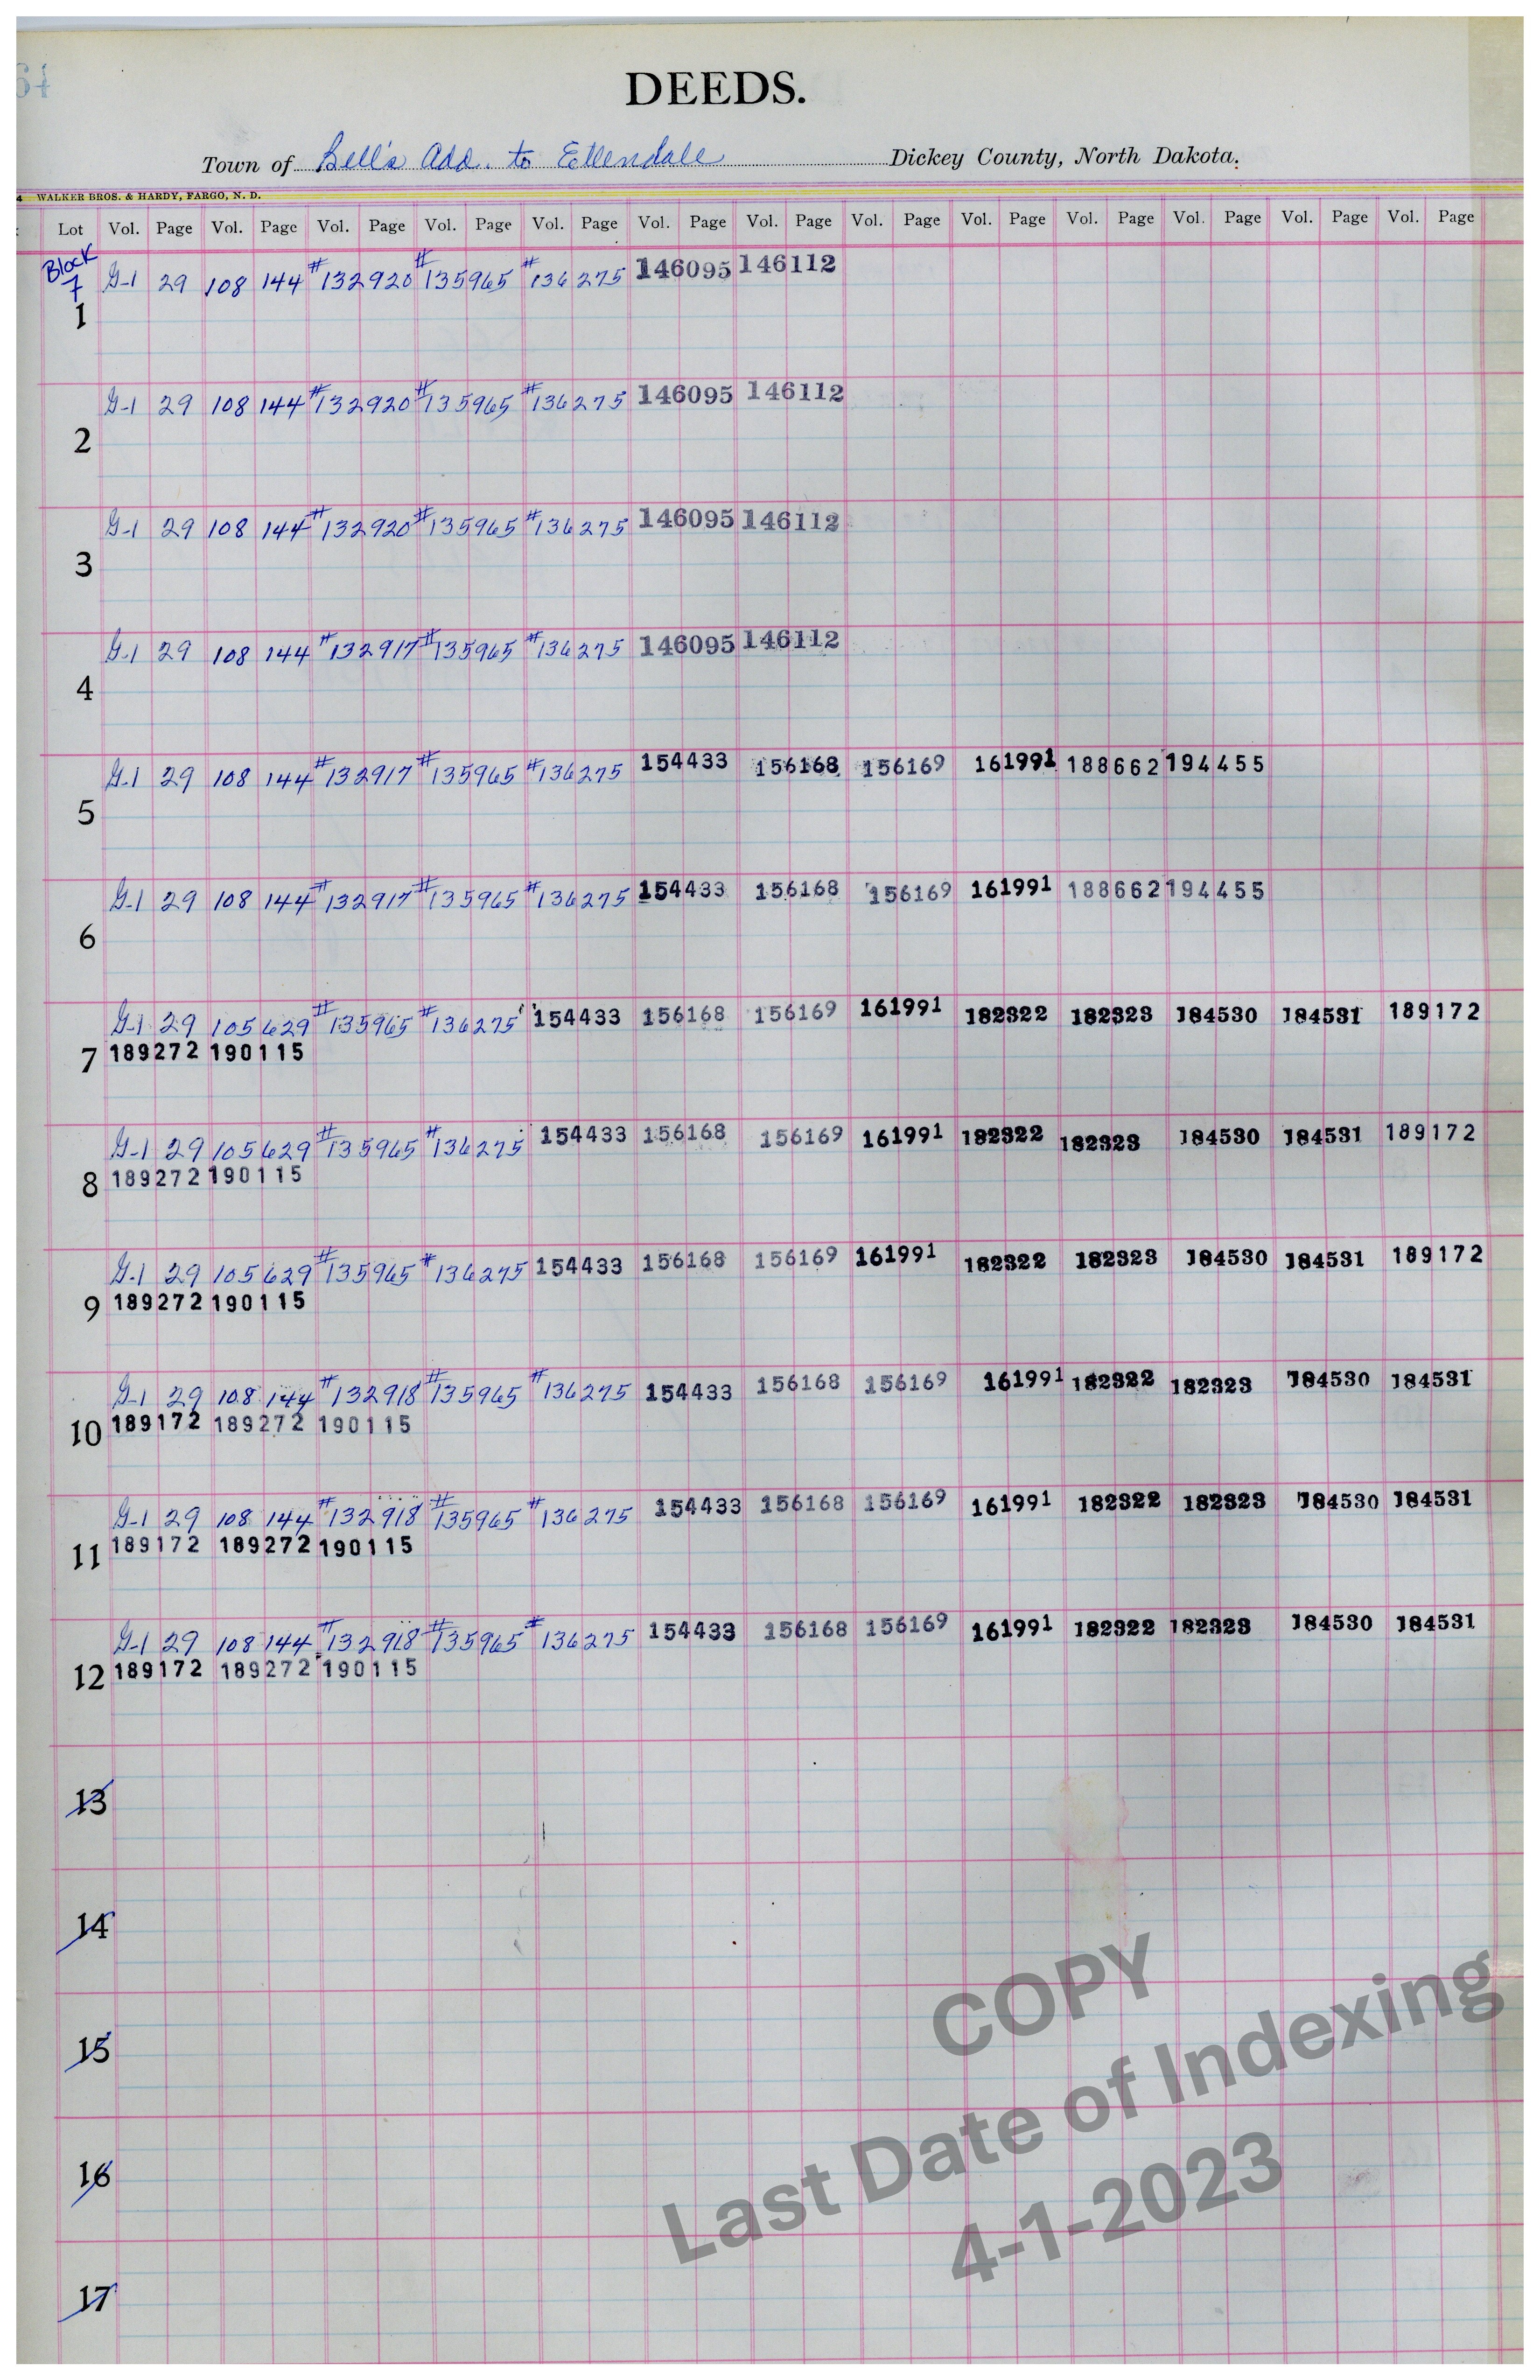 DEEDS.
Town of Bell's Add. to Ellendale Dickey County, North Dakota.
4 WALKER BROS. & HARDY, FARGO, N. D.
Lot Vol. Page Vol. Page Vol. Page Vol. Page Vol. Page Vol. Page Vol. Page Vol. Page Vol. Page Vol. Page Vol. Page Vol. Page Vol. Page
Block
7
G-1 29 108 144 #132920 #135965 #136275 146095 146112
1
G-1 29 108 144 #132920 #135965 #136275 146095 146112
2
G-1 29 108 144 #132920 #135965 #136275 146095 146112
3
G-1 29 108 144 #132917 #135965 #136275 146095 146112
4
G-1 29 108 144 #132917 #135965 #136275 154433 156168 156169 161991 188662 194455
5
G-1 29 108 144 #132917 #135965 #136275 154433 156168 156169 161991 188662 194455
6
G-1 29 105 629 #135965 #136275 154433 156168 156169 161991 182322 182323 184530 184531 189172
7 189272 190115
G-1 29 105 629 #135965 #136275 154433 156168 156169 161991 182322 182323 184530 184531 189172
8 189272 190115
G-1 29 105 629 #135965 #136275 154433 156168 156169 161991 182322 182323 184530 184531 189172
9 189272 190115
G-1 29 108 144 #132918 #135965 #136275 154433 156168 156169 161991 182322 182323 184530 184531
10 189172 189272 190115
G-1 29 108 144 #132918 #135965 #136275 154433 156168 156169 161991 182322 182323 184530 184531
11 189172 189272 190115
G-1 29 108 144 #132918 #135965 #136275 154433 156168 156169 161991 182322 182323 184530 184531
12 189172 189272 190115
13
14
15
16
17
COPY
Last Date of Indexing
4-1-2023